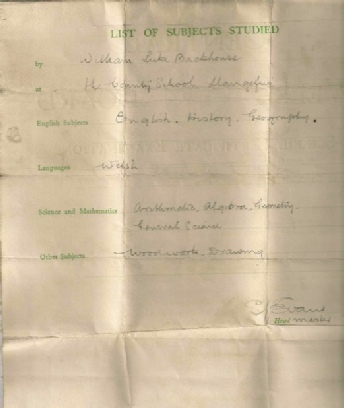 LIST OF SUBJECTS STUDIED
by William Luke Backhouse
at the County School Llangefni
English Subjects English. History. Geography.
Languages Welsh
Science and Mathematics Arithmetic. Algebra. Geometry.
General Science
Other Subjects Woodwork. Drawing
Evans
Head Master